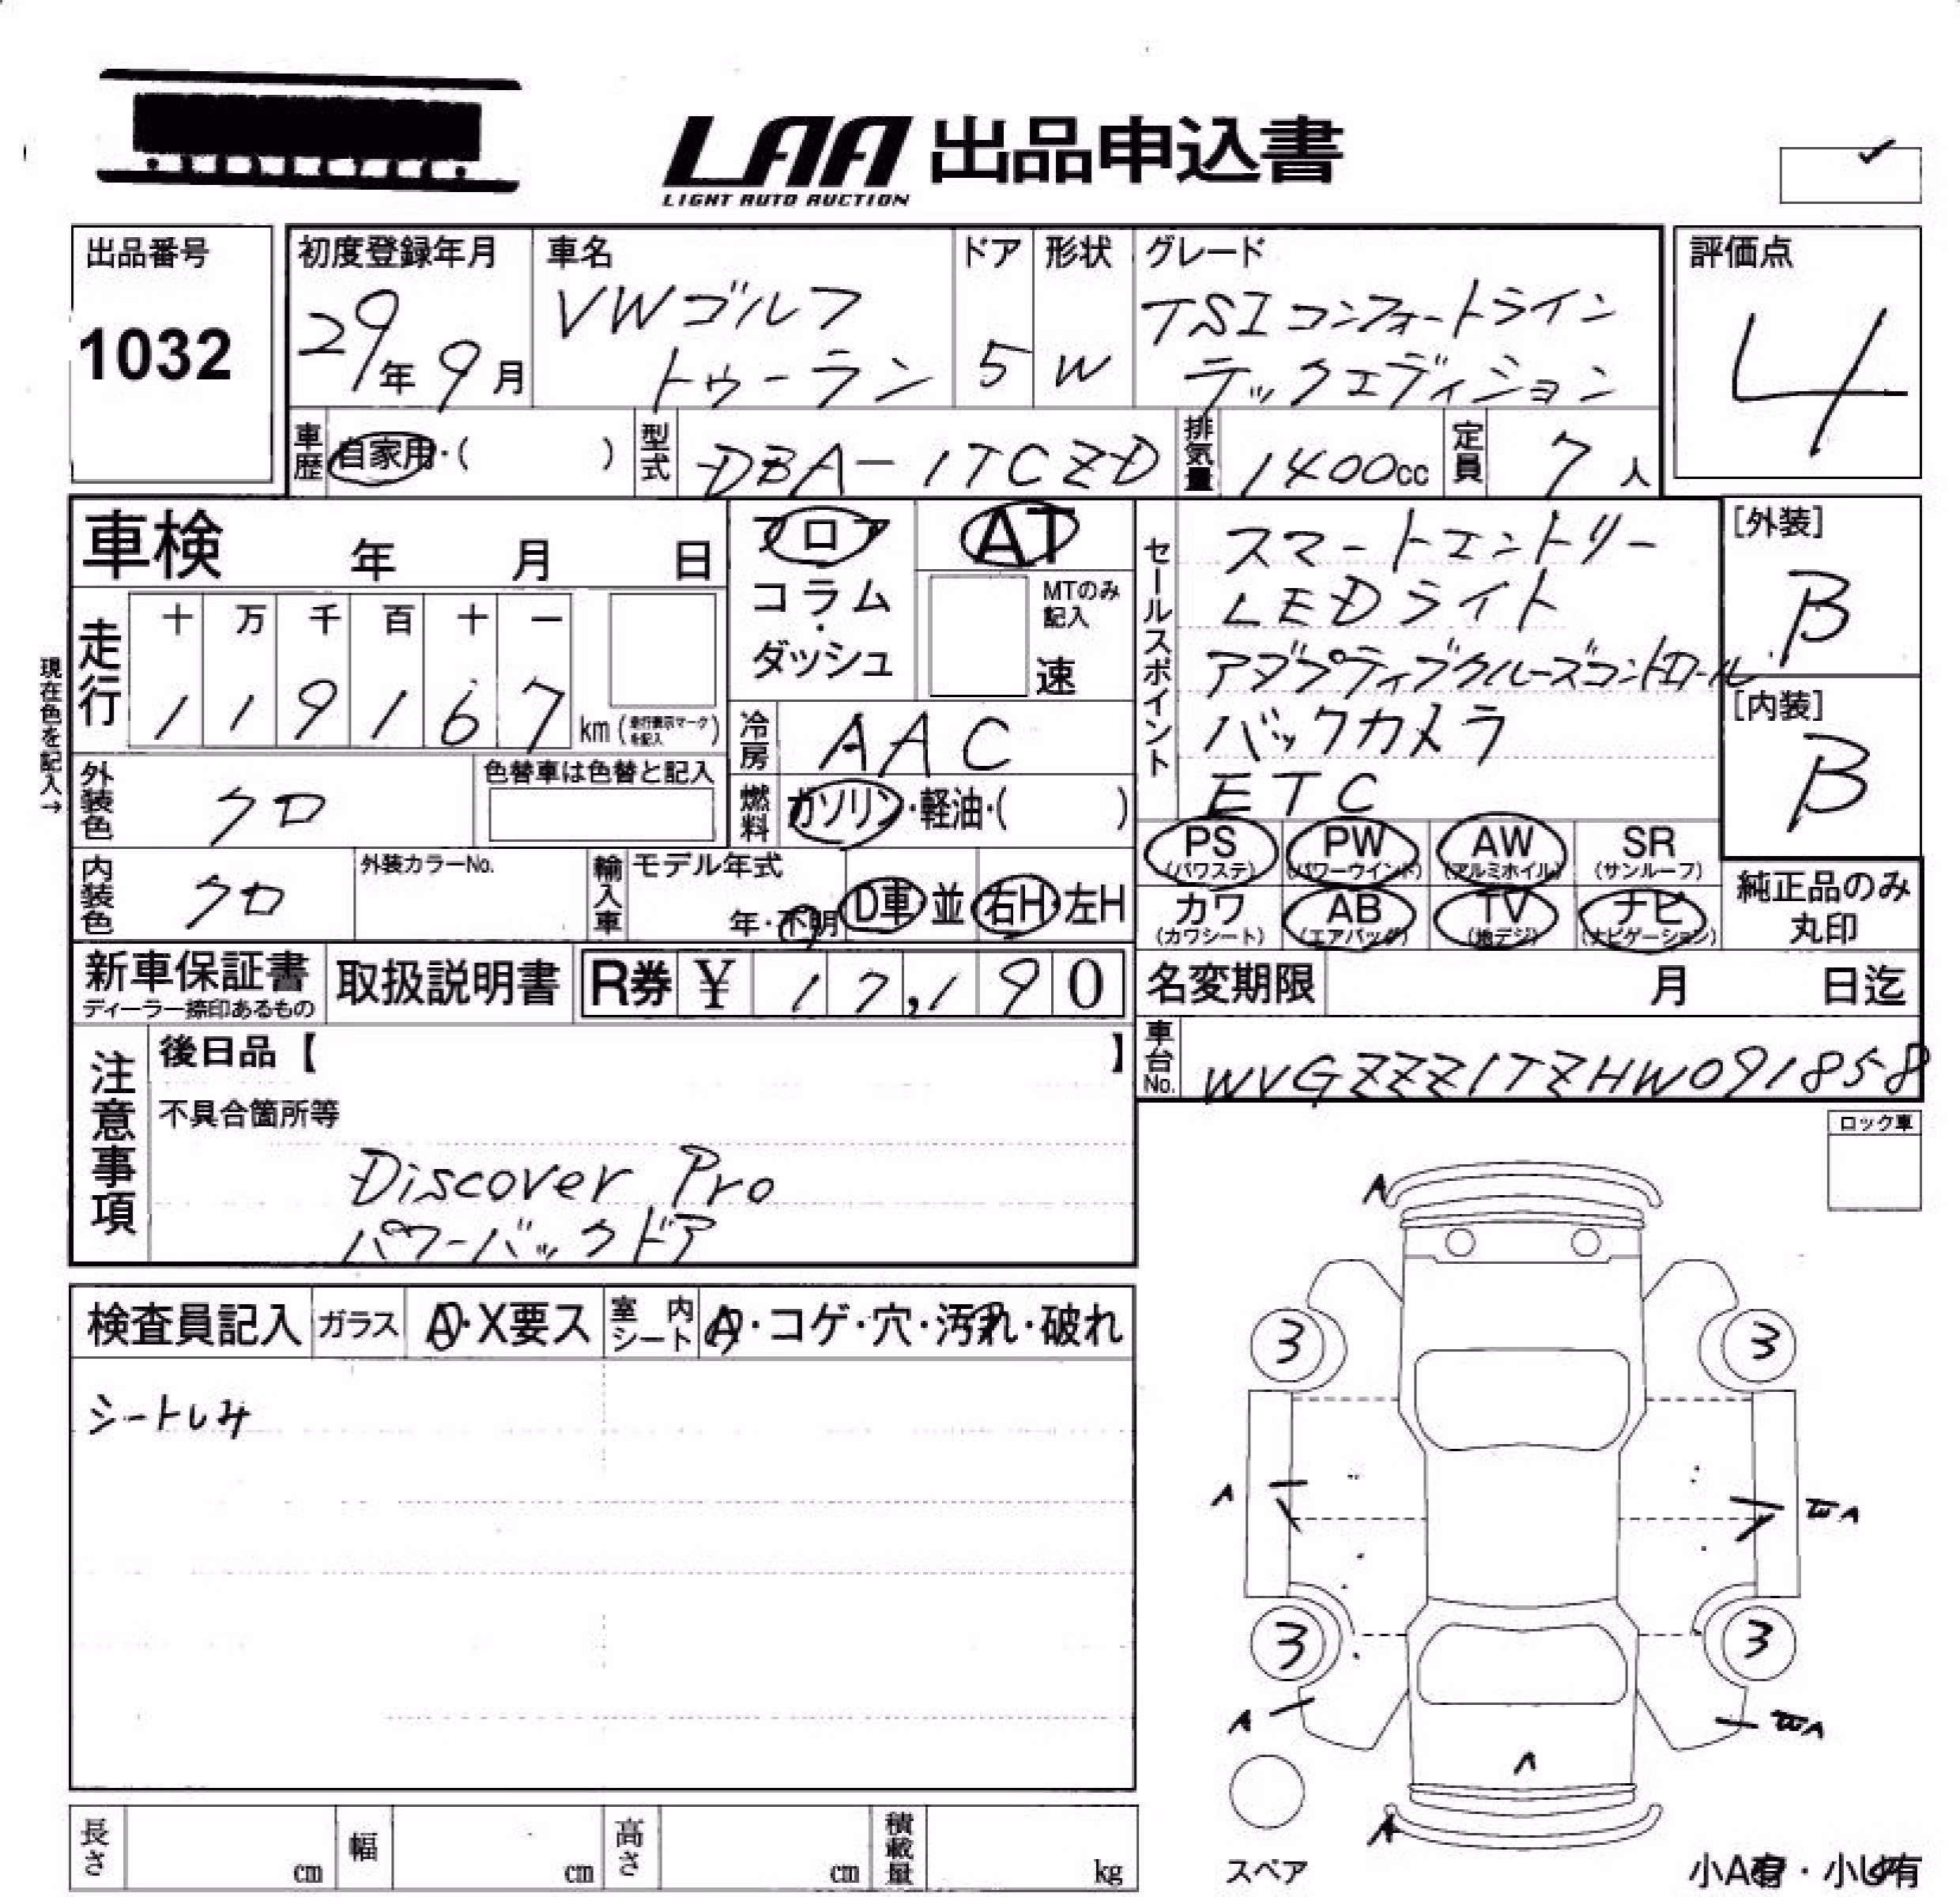 LAA 出品申込書
LIGHT AUTO AUCTION
出品番号
1032
初度登録年月
29年9月
車名
VWゴルフ
トゥーラン
ドア
5
形状
W
グレード
TSIコンフォートライン
テックエディション
評価点
4
車歴
自家用・( )
型式
DBA-1TCZD
排気量
1400cc
定員
7人
車検 年 月 日
現在色を記入→
走行
十 万 千 百 十 一
1 1 9 1 6 7
km(走行表示マークを記入)
フロア
コラム
・
ダッシュ
AT
MTのみ
記入
速
冷房
AAC
外装色
クロ
色替車は色替と記入
燃料
ガソリン・軽油・( )
内装色
クロ
外装カラーNo.
輸入車
モデル年式
年・不明
D車 並
右H・左H
セールスポイント
スマートエントリー
LEDライト
アダプティブクルーズコントロール
バックカメラ
ETC
[外装]
B
[内装]
B
PS
(パワステ)
PW
(パワーウインド)
AW
(アルミホイル)
SR
(サンルーフ)
カワ
(カワシート)
AB
(エアバッグ)
TV
(地デジ)
ナビ
(ナビゲーション)
純正品のみ
丸印
新車保証書
ディーラー捺印あるもの
取扱説明書
R券 ¥ 17,190
名変期限 月 日迄
車台No.
WVGZZZ1TZHW091858
注意事項
後日品【 】
不具合箇所等
Discover Pro
パワーバックドア
ロック車
検査員記入
ガラス
A・X要ス
室内シート
A・コゲ・穴・汚れ・破れ
シートしみ
A
3 3
A
WA
3 3
A
WA
A
A
スペア
小A有・小U有
長さ cm
幅 cm
高さ cm
積載量 kg